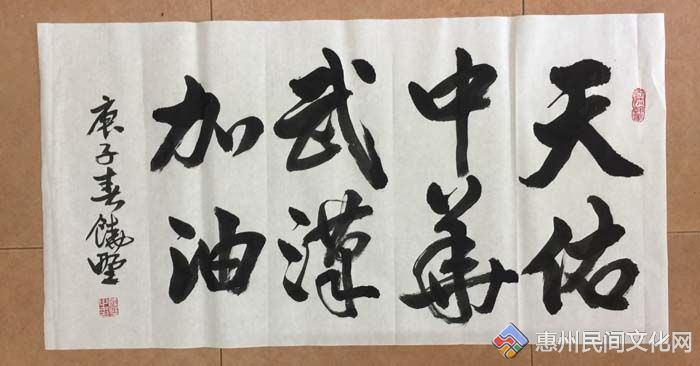 天佑
中華
武漢
加油
庚子春
惠州民间文化网